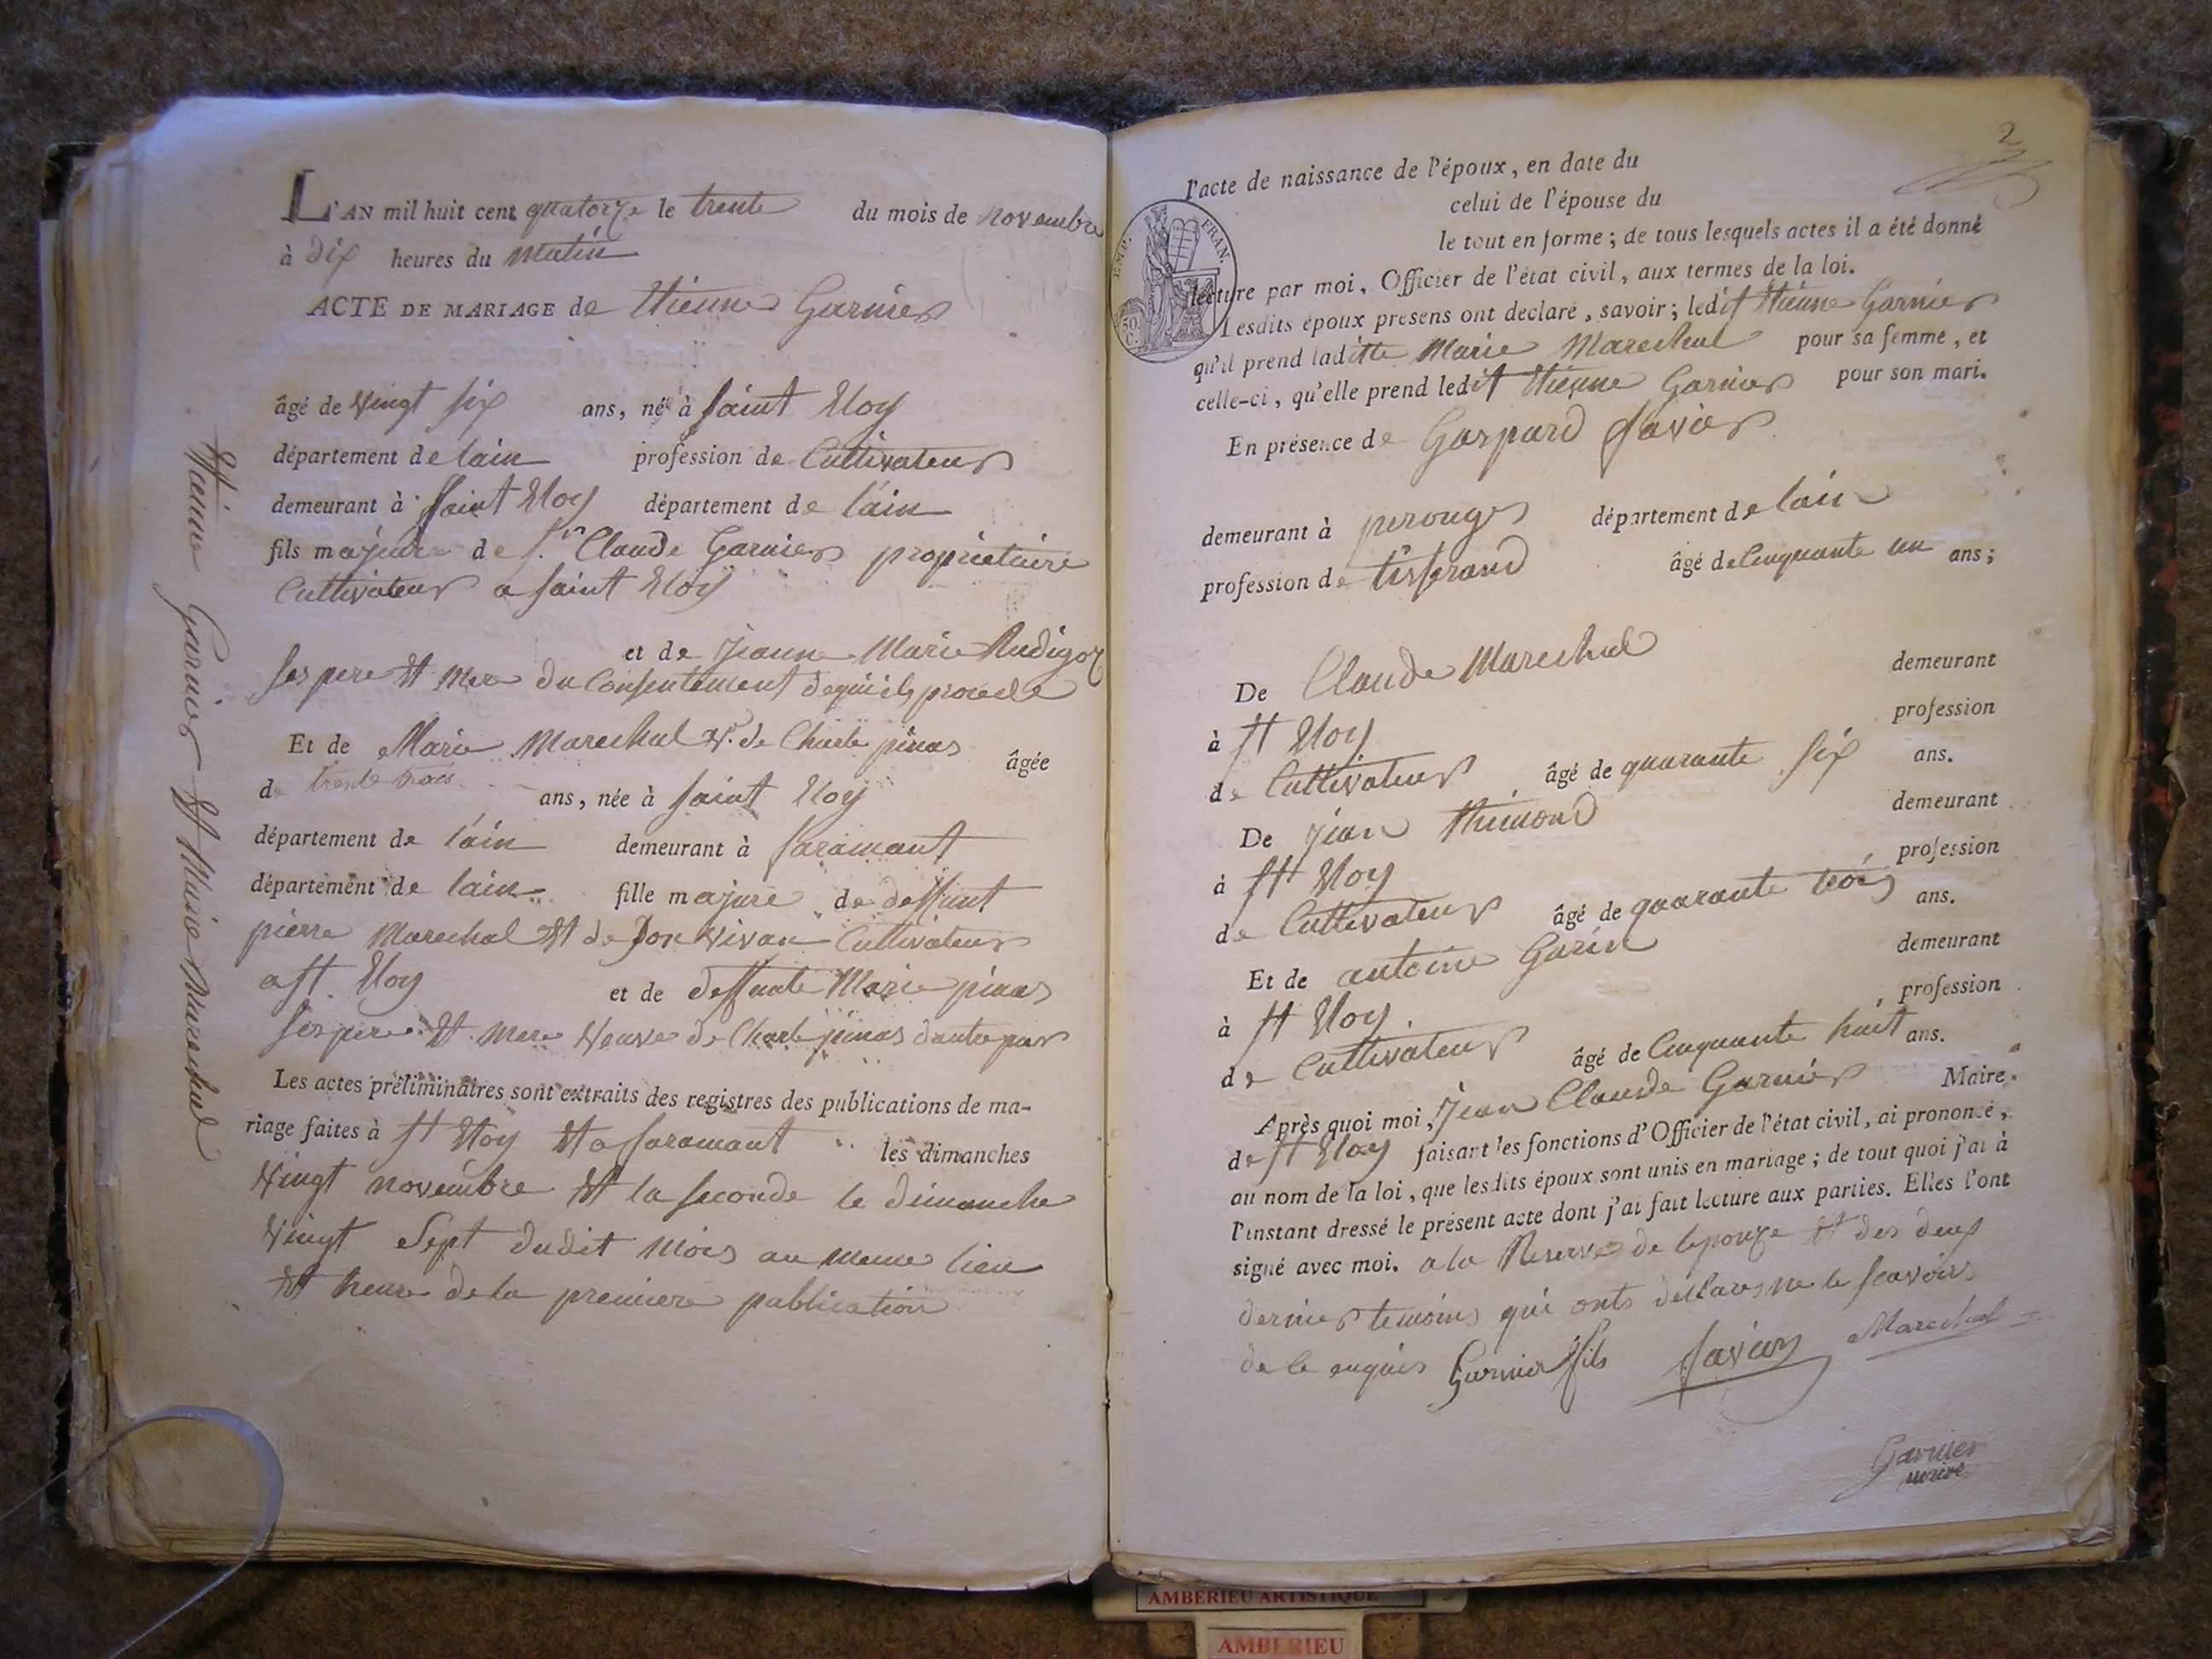 L'AN mil huit cent quatorze le trente du mois de novembre
à dix heures du matin
ACTE DE MARIAGE de Etienne Garnier
âgé de vingt six ans, né à saint Eloy
département de lain profession de Cultivateur
demeurant à saint Eloy département de l'ain
fils majeur de Sr Claude Garnier propriétaire
Cultivateur a saint Eloy
et de jeanne Marie Audigoz
ses pere et mere du Consentement dequi ils procede
Et de Marie Marechal Ve. de Charle pinas âgée
de trente trois ans, née à saint Eloy
département de l'ain demeurant à faramant
département de lain fille majure de deffunt
pierre Marechal et de son vivan Cultivateur
a st. Eloy et de deffunte Marie pinas
ses pere et mere veuve de Charle pinas dautre par
Les actes préliminaires sont extraits des registres des publications de ma-
riage faites à st Eloy et a faramant les dimanches
vingt novembre et la seconde le dimanche
vingt sept dudit mois au meme lieu
et heure de la premiere publication
Etienne Garnier et Marie Marechal
2
l'acte de naissance de l'époux, en date du
celui de l'épouse du
le tout en forme; de tous lesquels actes il a été donné
lecture par moi, Officier de l'état civil, aux termes de la loi.
Lesdits époux présens ont déclaré, savoir; ledit Etienne Garnier
qu'il prend laditte Marie Marechal pour sa femme, et
celle-ci, qu'elle prend ledit Etienne Garnier pour son mari.
En présence de Gaspard Savier
demeurant à perouges département de lain
profession de tisserand âgé de Cinquante un ans;
De Claude Marechal demeurant
à st Eloy profession
de Cultivateur âgé de quarante six ans.
De jean thimond demeurant
à st Eloy profession
de Cultivateur âgé de quarante trois ans.
Et de antoine Garin demeurant
à st Eloy profession
de Cultivateur âgé de Cinquante huit ans.
Après quoi moi, jean Claude Garnier Maire
de st Eloy faisant les fonctions d'Officier de l'état civil, ai prononcé,
au nom de la loi, que lesdits époux sont unis en mariage; de tout quoi j'ai à
l'instant dressé le présent acte dont j'ai fait lecture aux parties. Elles l'ont
signé avec moi. a la Reserve de lepouze et des deux
dernier temoins qui onts dellares ne le scavoir
de le enquis Garnier fils Savier Marechal
Garnier
maire
EMP. FRAN.
50
C.
AMBERIEU ARTISTIQUE
AMBERIEU